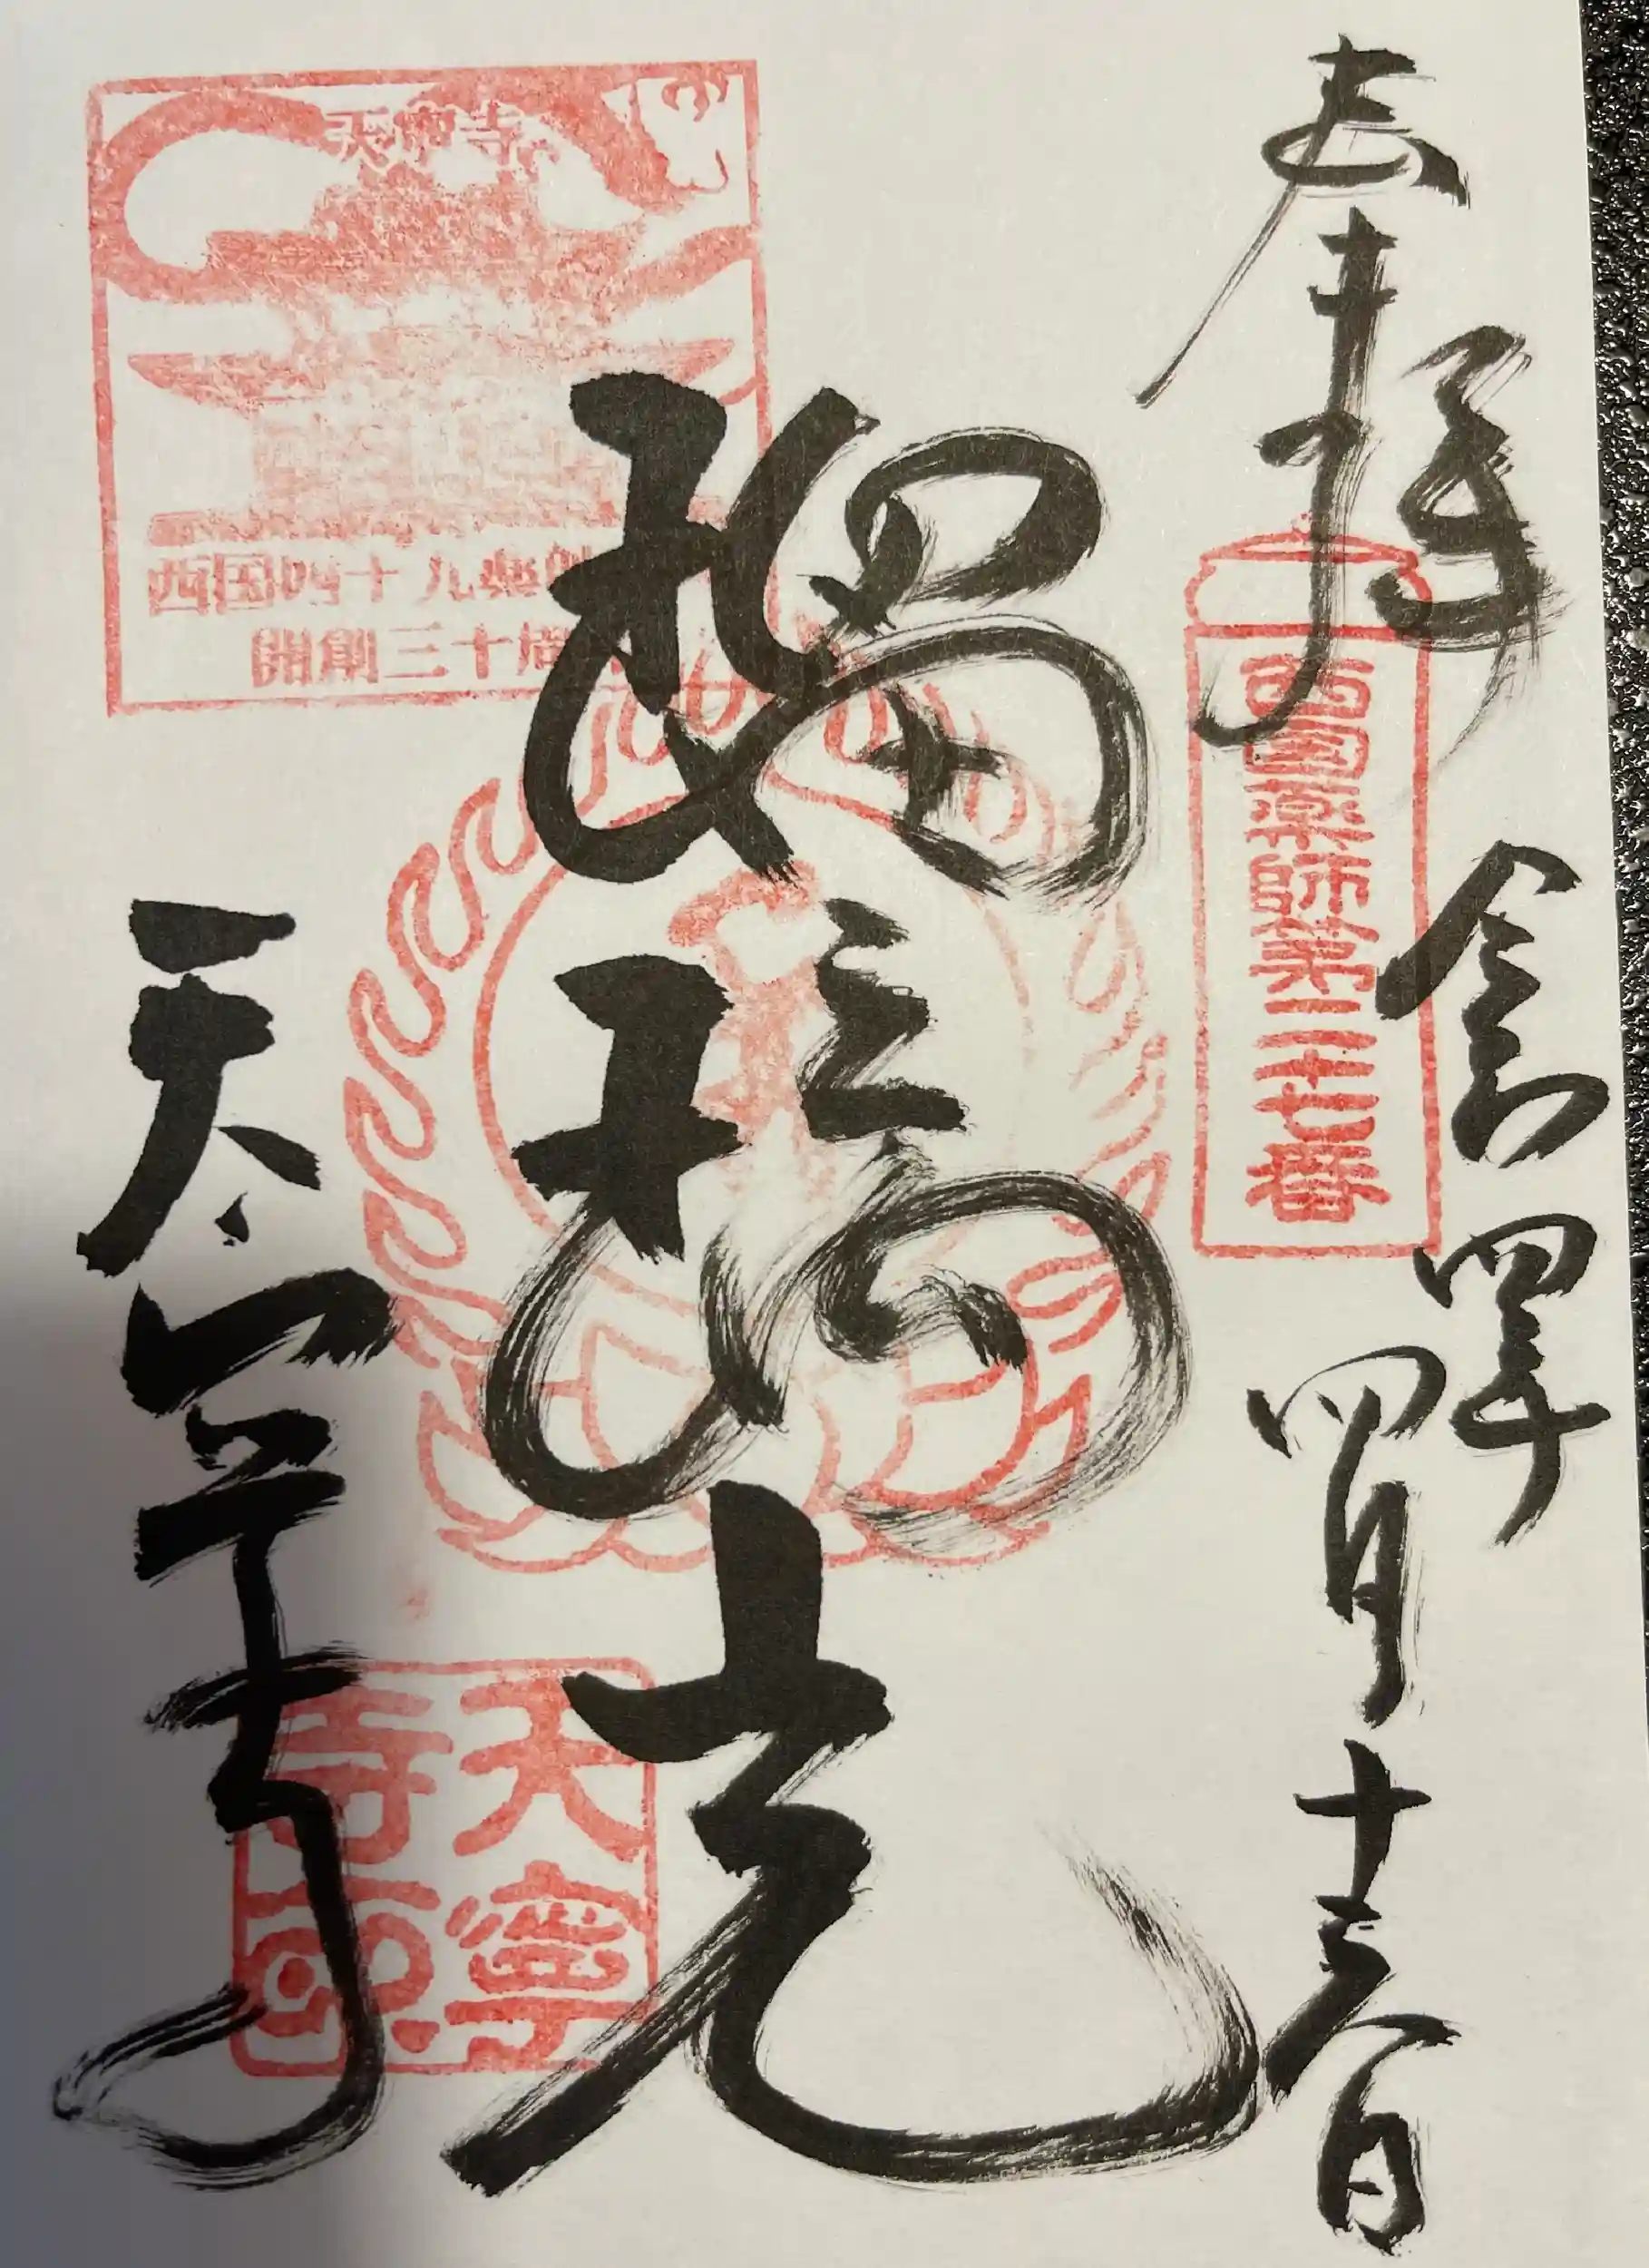 奉拝
令四年
四月十六日
西國薬師第二十七番
瑠璃光
天寧寺
西国四十九薬師
開創三十周
天寧寺
天寧
寺印